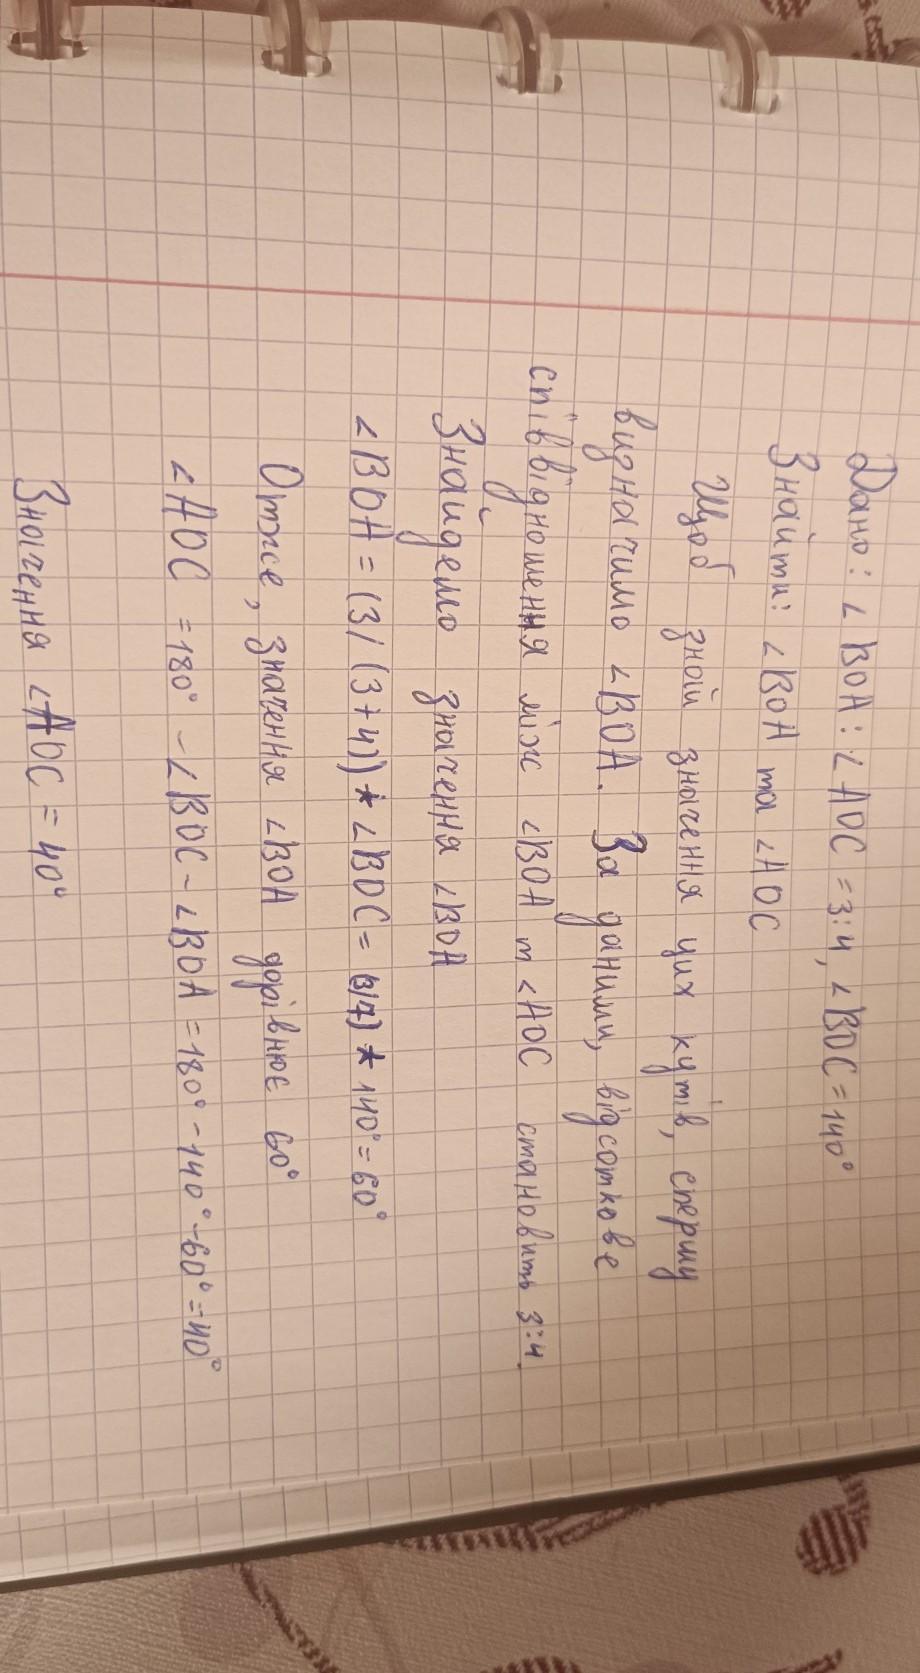 Дано: ∠BOA:∠AOC=3:4, ∠BOC=140°
Знайти: ∠BOA та ∠AOC
Щоб знай значення цих кутів, спершу
визначимо ∠BOA. За даними, відсоткове
співвідношення між ∠BOA т ∠AOC становить 3:4.
Знайдемо значення ∠BOA
∠BOA=(3/(3+4))*∠BOC=(3/7)*140°=60°
Отже, значення ∠BOA дорівнює 60°
∠AOC=180°-∠BOC-∠BOA=180°-140°-60°=40°
Значення ∠AOC=40°